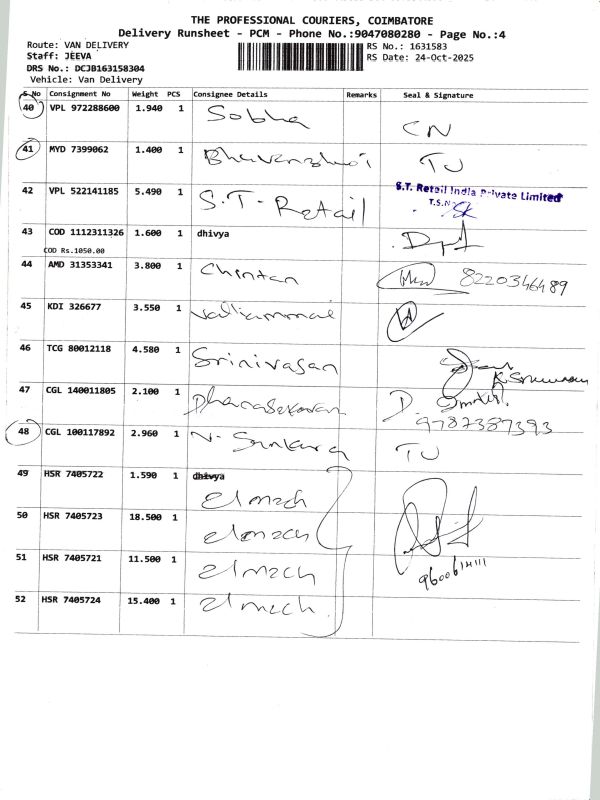 THE PROFESSIONAL COURIERS, COIMBATORE
Delivery Runsheet - PCM - Phone No.:9047080280 - Page No.:4
Route: VAN DELIVERY
RS No.: 1631583
Staff: JEEVA
RS Date: 24-Oct-2025
DRS No.: DCJB163158304
Vehicle: Van Delivery
S No Consignment No Weight PCS Consignee Details Remarks Seal & Signature
40 VPL 972288600 1.940 1 Sobha CN
41 MYD 7399062 1.400 1 TU
42 VPL 522141185 5.490 1 S.T. Retail S.T. Retail India Private Limited
43 COD 1112311326 1.600 1 dhivya
COD Rs.1050.00
44 AMD 31353341 3.800 1 Chintan 8220346489
45 KDI 326677 3.550 1 Valliammai
46 TCG 80012118 4.580 1 Srinivasan
47 CGL 140011805 2.100 1 Dhanasekaran 9787387393
48 CGL 100117892 2.960 1 N. TU
49 HSR 7405722 1.590 1 dhivya
elmech
50 HSR 7405723 18.500 1 elmech
51 HSR 7405721 11.500 1 elmech
52 HSR 7405724 15.400 1 elmech